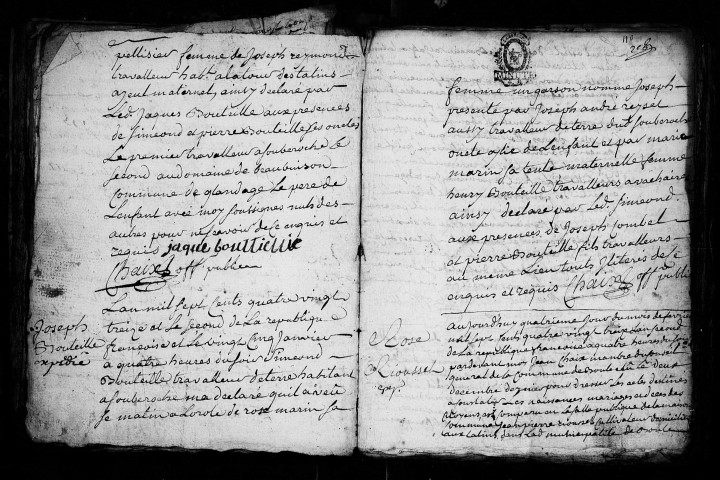 pellisier femme de Joseph reymond
travailleur habt a la tour des talins
ayeut maternel, ainsy declaré par
Led. Jaques Bouteille aux presences
de Simeond et pierre Bouteille ses oncles
Le premier travailleur a Souberoche le
second au domaine de beaubuisson
commune de glandage Le pere de
L'enfant avec moy soussignes nuls des
autres pour ne scavoir de ce enquis et
requis jaque bouttellie
Chaix off public
Joseph
Bouteille
expedié
L'an mil sept cents quatre vingt
treize et le second de La republique
françoise et le vingt cinq Janvier
a quatre heures du soir Simeond
Bouteille travailleur de terre habitant
a Souberoche m'a declaré qu'il a été
le matin a de rose marin sa
118
femme un garson nommé Joseph
presenté par Joseph andré
aussy travailleur de terre dud. Souberoche
oncle a de L'enfant et par marie
marin sa tente maternelle femme
henry Bouteille travailleurs a
ainsy declaré par Led. Simeond
aux presences de Joseph Joubert
et pierre Bouteille fils travailleurs
au meme Lieu touts Iliteres de ce
enquis et requis Chaix off public
Rose
Rioussel
exp.
aujourd'huy quatrieme Jour du mois de fevrier
mil sept cents quatre vingt treize L'an second
de la republique francoise a quatre heures du soir
pardevant moy Jean Chaix membre du conseil
general de la commune de le deux
decembre dernier pour dresser Les actes destinés
a constater Les naissances mariages et deces des
citoyens, est comparu en La salle publique de la maison
commune Jean pierre Rioussel cultivateur domicilié
aux talins, dans Led. municipalité de